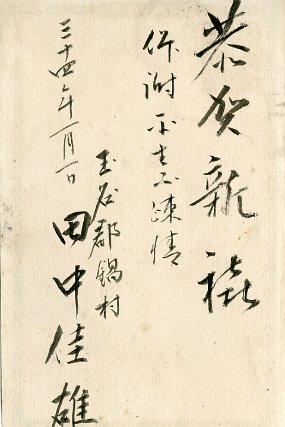 恭賀新禧
併謝平生之疎情
三十四年一月一日
玉名郡鍋村
田中佳雄